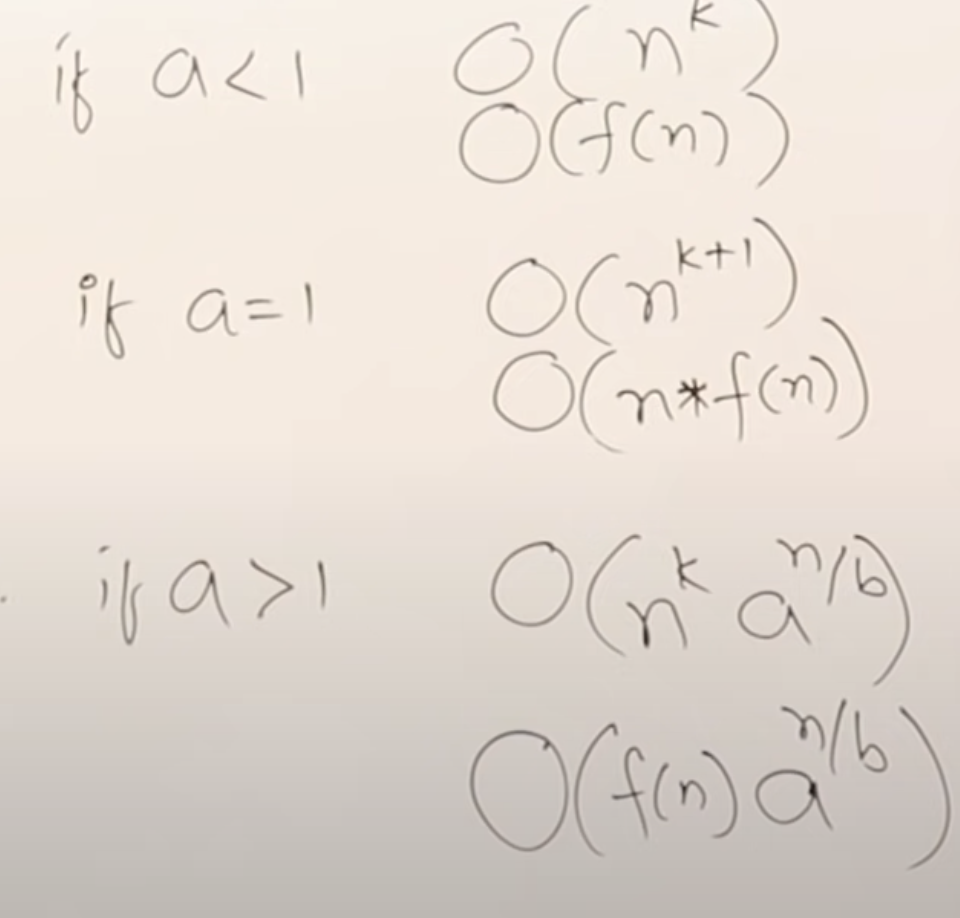 if a < 1 O(n^k)
O(f(n))
if a = 1 O(n^{k+1})
O(n*f(n))
if a > 1 O(n^k a^{n/b})
O(f(n) a^{n/b})